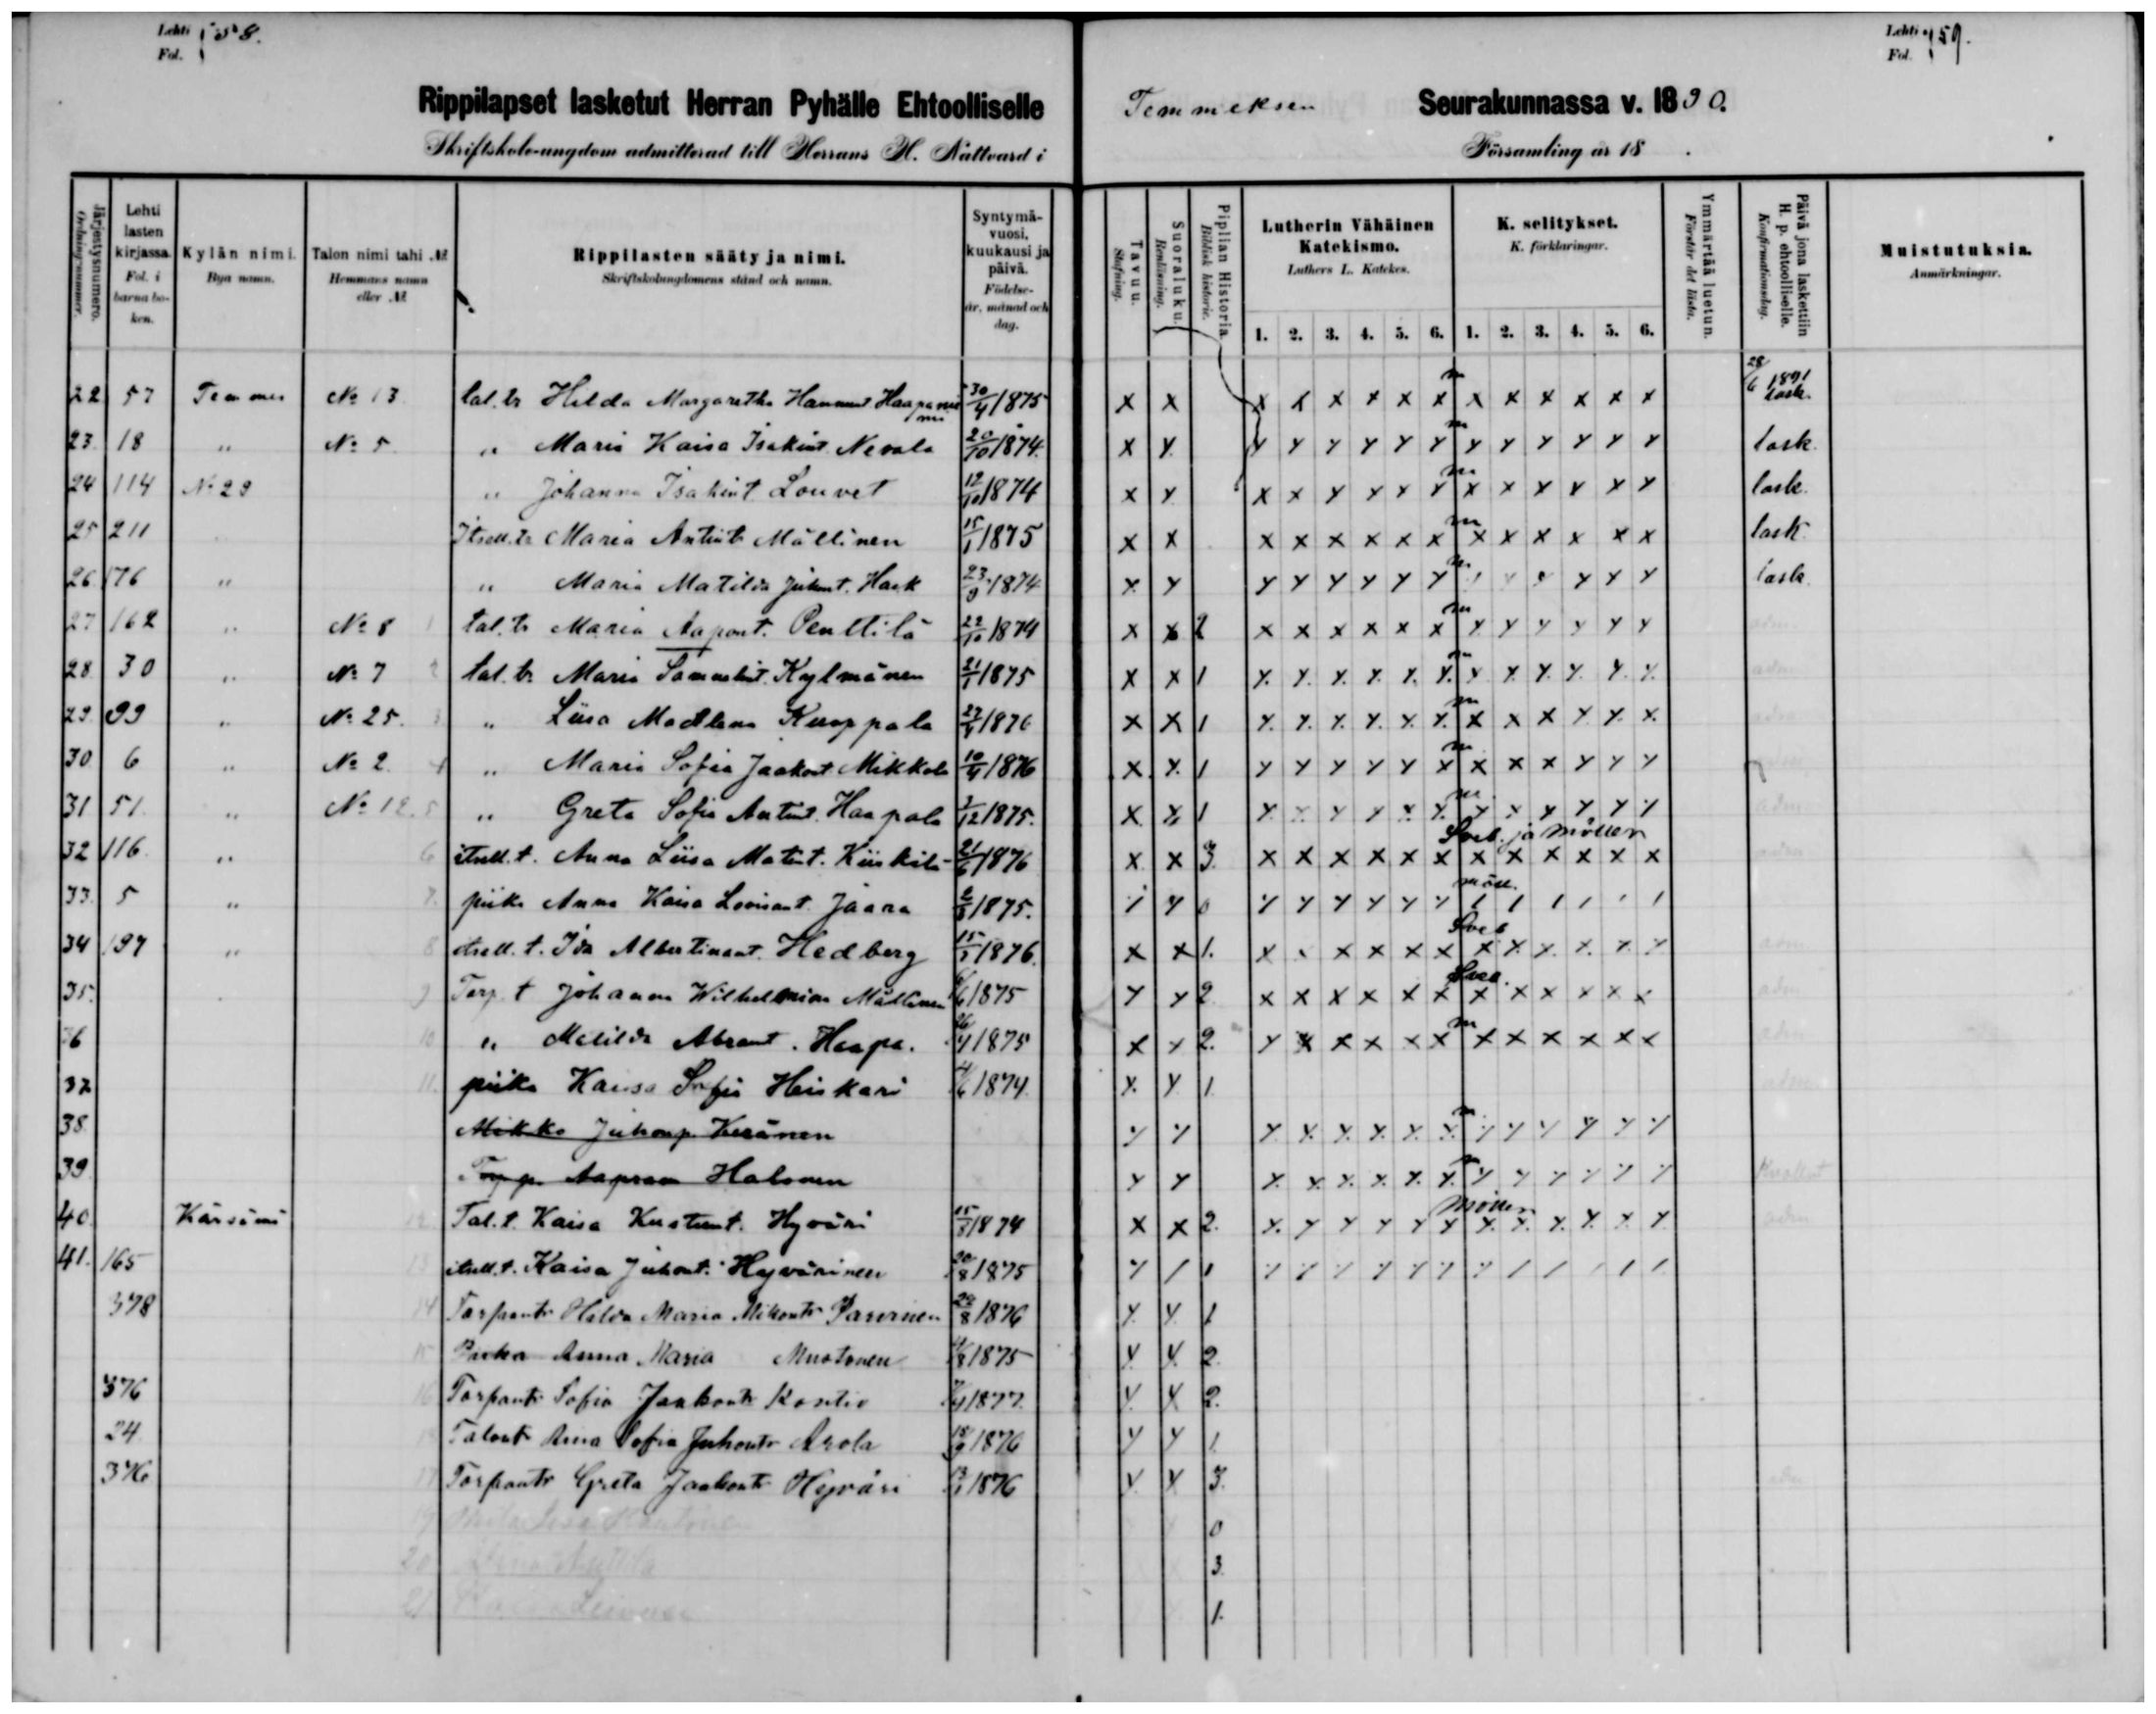 Lehti
Fol. 158.
Lehti
Fol. 159.
Rippilapset lasketut Herran Pyhälle Ehtoolliselle Temmeksen Seurakunnassa v. 1890.
Skriftskole-ungdom admitterad till Herrans H. Nattvard i Församling år 18 .
Järjestysnumero. Ordningsnummer.
Lehti lasten kirjassa. Fol. i barna boken.
Kylän nimi. Bya namn.
Talon nimi tahi № Hemmans namn eller №
Rippilasten sääty ja nimi. Skriftskolungdomens stånd och namn.
Syntymä-vuosi, kuukausi ja päivä. Födelse-år, månad och dag.
Tavuu. Stafning.
Suoraluku. Renläsning.
Piplian Historia. Biblisk historie.
Lutherin Vähäinen Katekismo. Luthers L. Katekes.
K. selitykset. K. förklaringar.
Ymmärtää luetun. Förstår det lästa.
Päivä jona laskettiin H. p. ehtoolliselle. Konfirmationsdag.
Muistutuksia. Anmärkningar.
1. 2. 3. 4. 5. 6. 1. 2. 3. 4. 5. 6.
22 57 Temmes № 13 tal. tr Hilda Margaretha Hannunt Haapaniemi 30/4 1875 x x x x x x x x m x x x x x x 28/6 1891 lask.
23. 18 " № 5 " Maria Kaisa Isakint. Nevala 20/10 1874. x x x x x x x x m x x x x x x lask.
24 114 № 29 " Johanna Isakint Louvet 12/10 1874 x x x x x x x x m x x x x x x lask.
25 211 Itsell. tr Maria Antint. Mällinen 15/1 1875 x x x x x x x x m x x x x x x lask
26. 176 " " Maria Matilda Juhont. Hack 23/9 1874 x x x x x x x x m x x x x x x lask.
27 162 " № 8 1 tal. tr Maria Aapont. Penttilä 22/10 1874 x x 2 x x x x x x m x x x x x x adm
28. 30 " № 7 2 tal. tr Maria Samuelint. Kylmänen 21/1 1875 x x 1 x x x x x x m x x x x x x adm
29. 99 " № 25. 3 " Liisa Madlena Kuoppala 27/4 1876 x x 1 x x x x x x m x x x x x x adm
30. 6 " № 2. 4 " Maria Sofia Jaakont Mikkola 10/4 1876 x x 1 x x x x x x m x x x x x x
31. 51. " № 12. 5 " Greta Sofia Antint. Haapala 1/12 1875. x x 1 x x x x x x m. x x x x x x adm
32 116. " 6 itsell. t. Anna Liisa Matint. Kiiskilä 21/6 1876 x x 3. x x x x x x Sveb. ja Möller x x x x x x adm
33. 5 " 7. piika Anna Kaisa Loviisant. Jaara 1875. 0 möll.
34 197 " 8 itsell. t. Ida Albertinant. Hedberg 15/5 1876. x x 1. x x x x x x Sveb x x x x x x adm.
35. 9 Torp. t Johanna Wilhelmina Mällinen 1875 x x 2 x x x x x x Sveb. x x x x x x adm
36 10 " Matilda Abramt. Haapa. 26/4 1875 x x 2. x x x x x x m x x x x x x adm
37 11. piika Kaisa Sofia Heiskari 4/6 1874. x x 1. adm
38. Mikko Juhonp. Keränen x x x x x x x x m x x x x x x
39. Torp. p. Aapram Halonen x x x x x x x x m x x x x x x
40. Kärsämä 12 Tal. t. Kaisa Kustunt. Hyväri 1874 x x 2. x x x x x x Möller x x x x x x adm
41. 165 13 itsell. t. Kaisa Juhont. Hyvärinen 20/8 1875 1
378 14 Torpantr Hilda Maria Mikontr Parvinen 24/8 1876 x x 1
15 Piika Anna Maria Mustonen 1875 x x 2.
376 16 Torpantr Sofia Jaakontr Kontio 1877. x x 2.
24. Talontr Anna Sofia Juhontr Arola 18/9 1876 x x 1.
376. Torpantr Greta Jaakontr Hyväri 1876 x x 3. adm
19 0
20 3.
21 1.